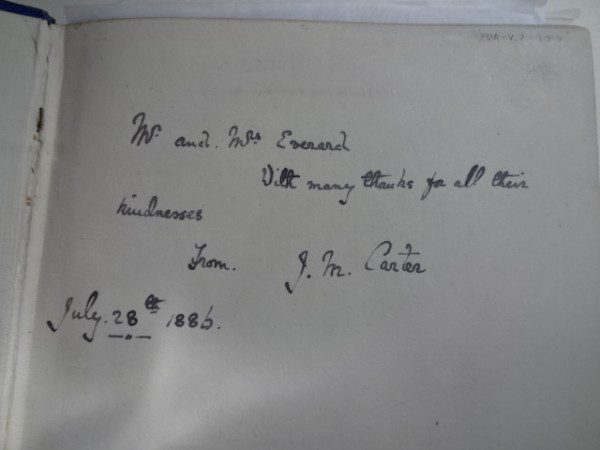 Mr. and. Mrs Everard
With many thanks for all their
kindnesses
From. J. M. Carter
July. 28th 1886.